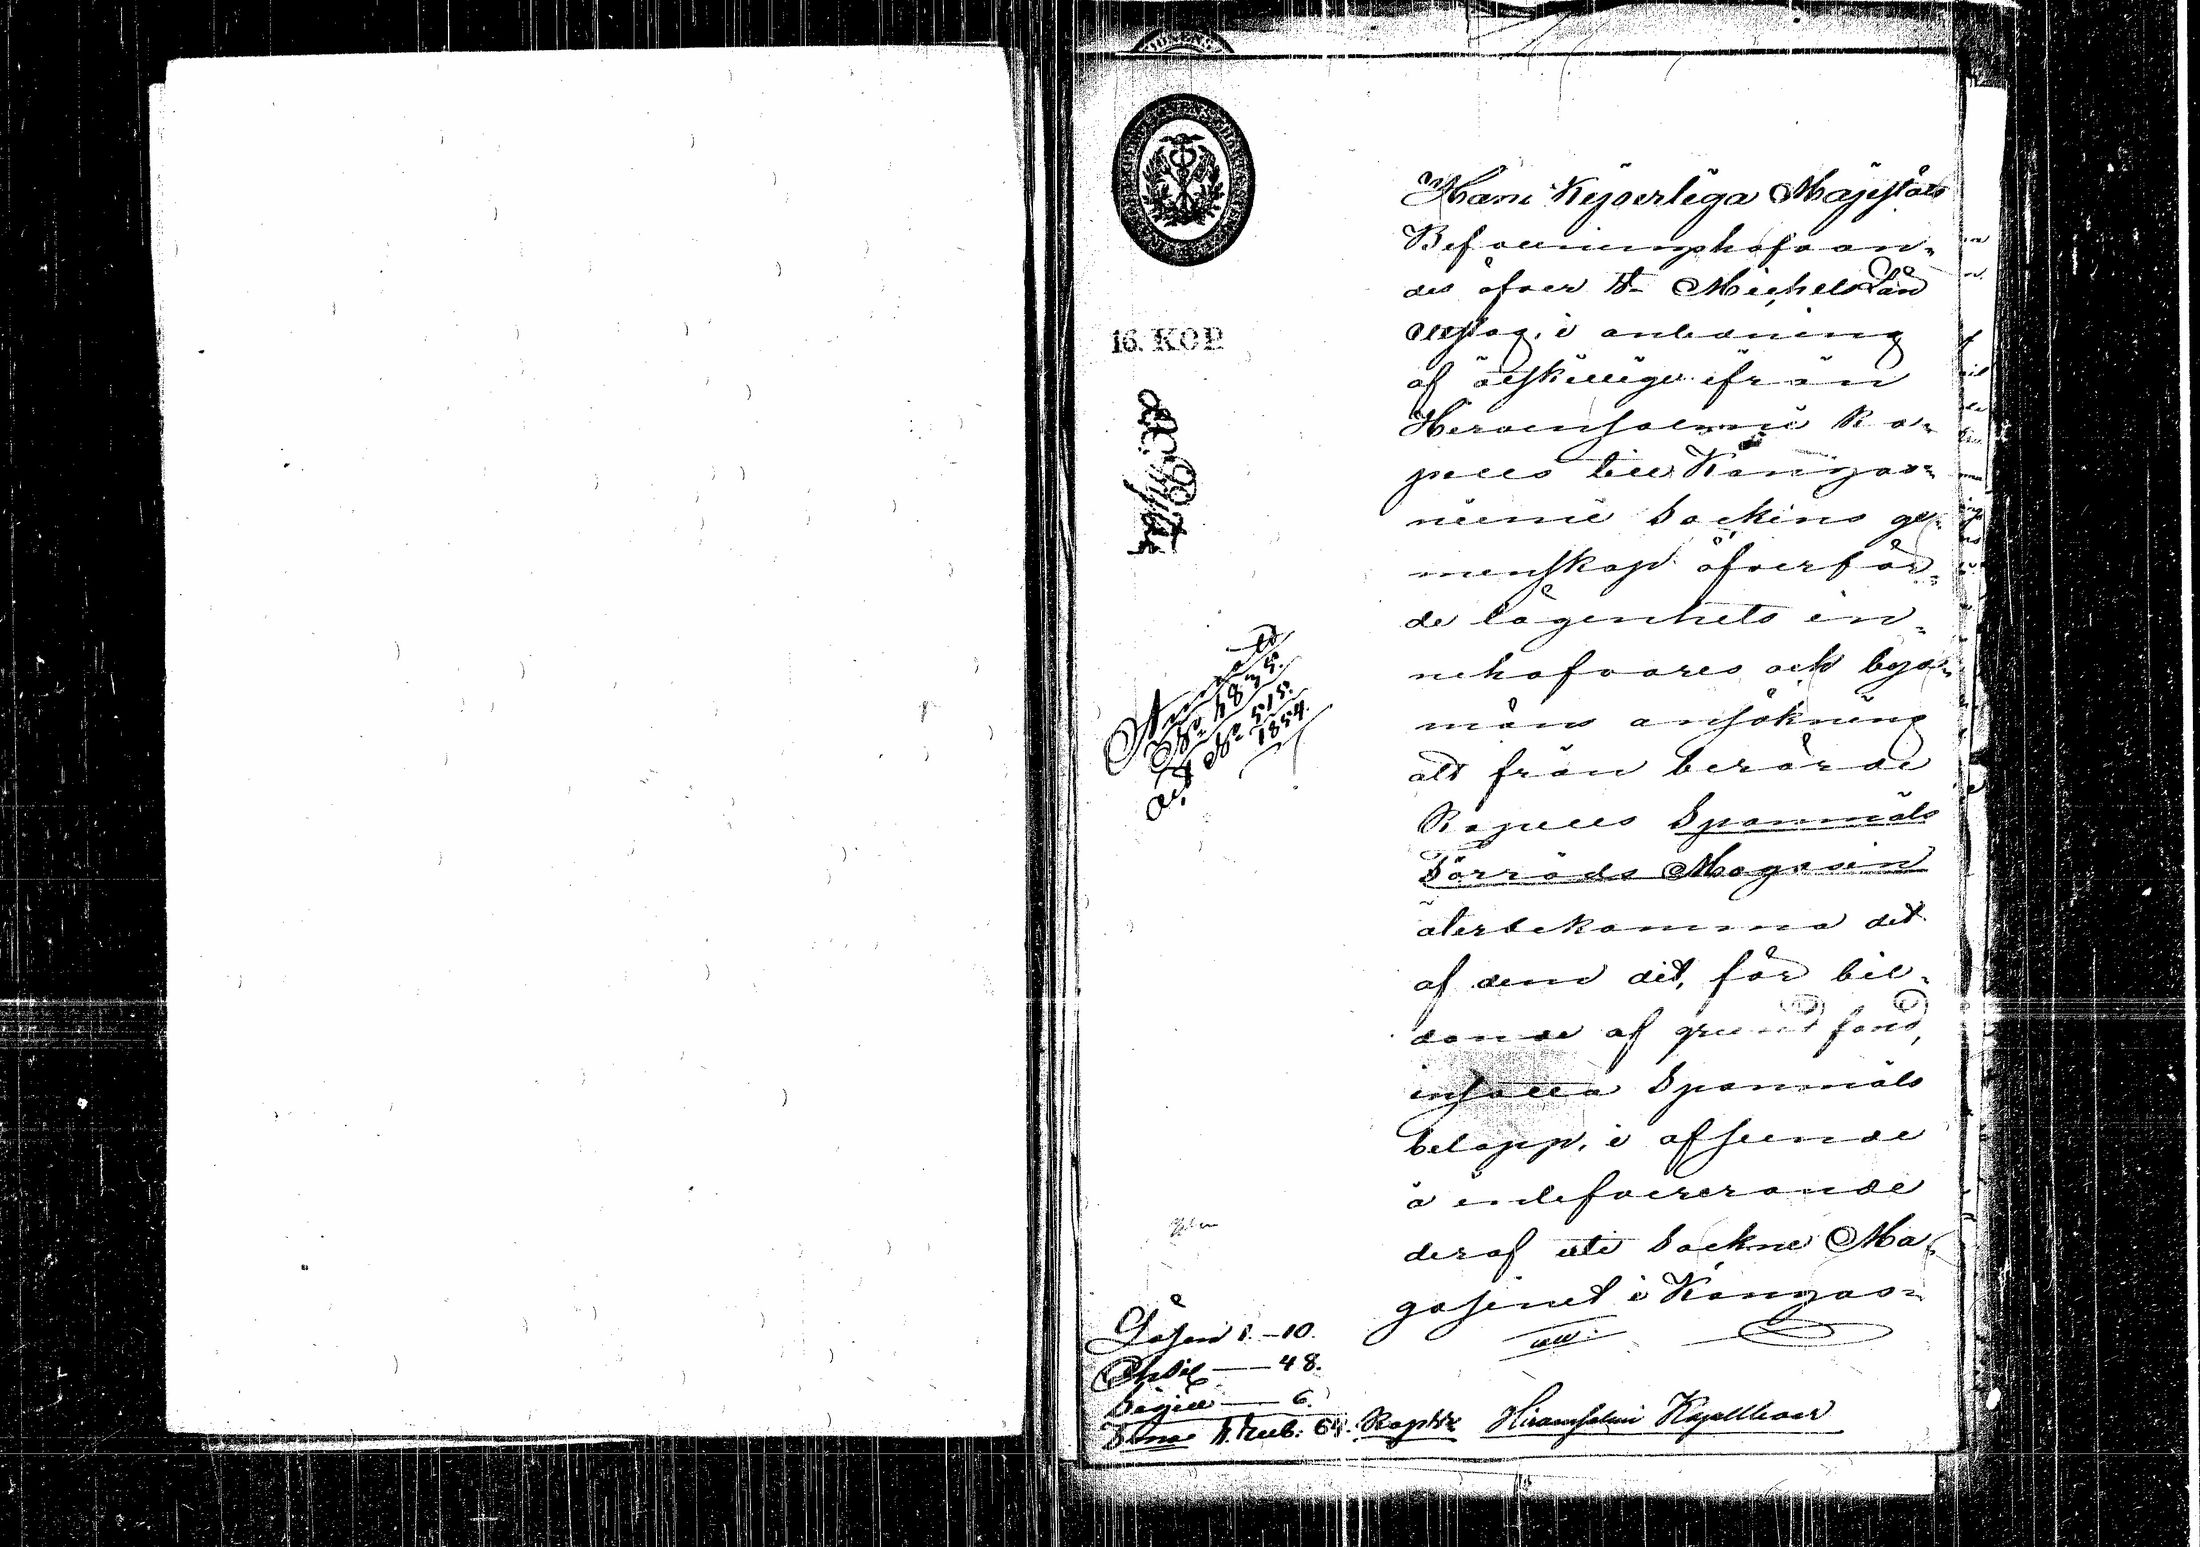 16. KOP.
Hans Kejserliga Majestäts
Befallningshafvan-
des öfver St Michels Län
utslag, i anledning
af åtskillige ifrån
Hirvensalmi Ka-
pells till Kangas-
niemi Sockens ge-
menskap öfverför-
de lägenhets in-
nehafvares och bya-
mäns ansökning
att från berörde
Kapells Spanmåls
Förråds Magasin
återbekomma det
af dem dit, för bil-
dande af grundfond,
insatta Spanmåls
belopp, i afseende
å indefvererande
deraf uti Sockne Ma-
gasinet i Kangas-
Anmält
No 48
No 515.
1854.
Lösen 1. -10.
Chsig — 48.
Sigill — 6.
Summa 1. Rub. 64. Kop. Hirvensalmi Kapellboer